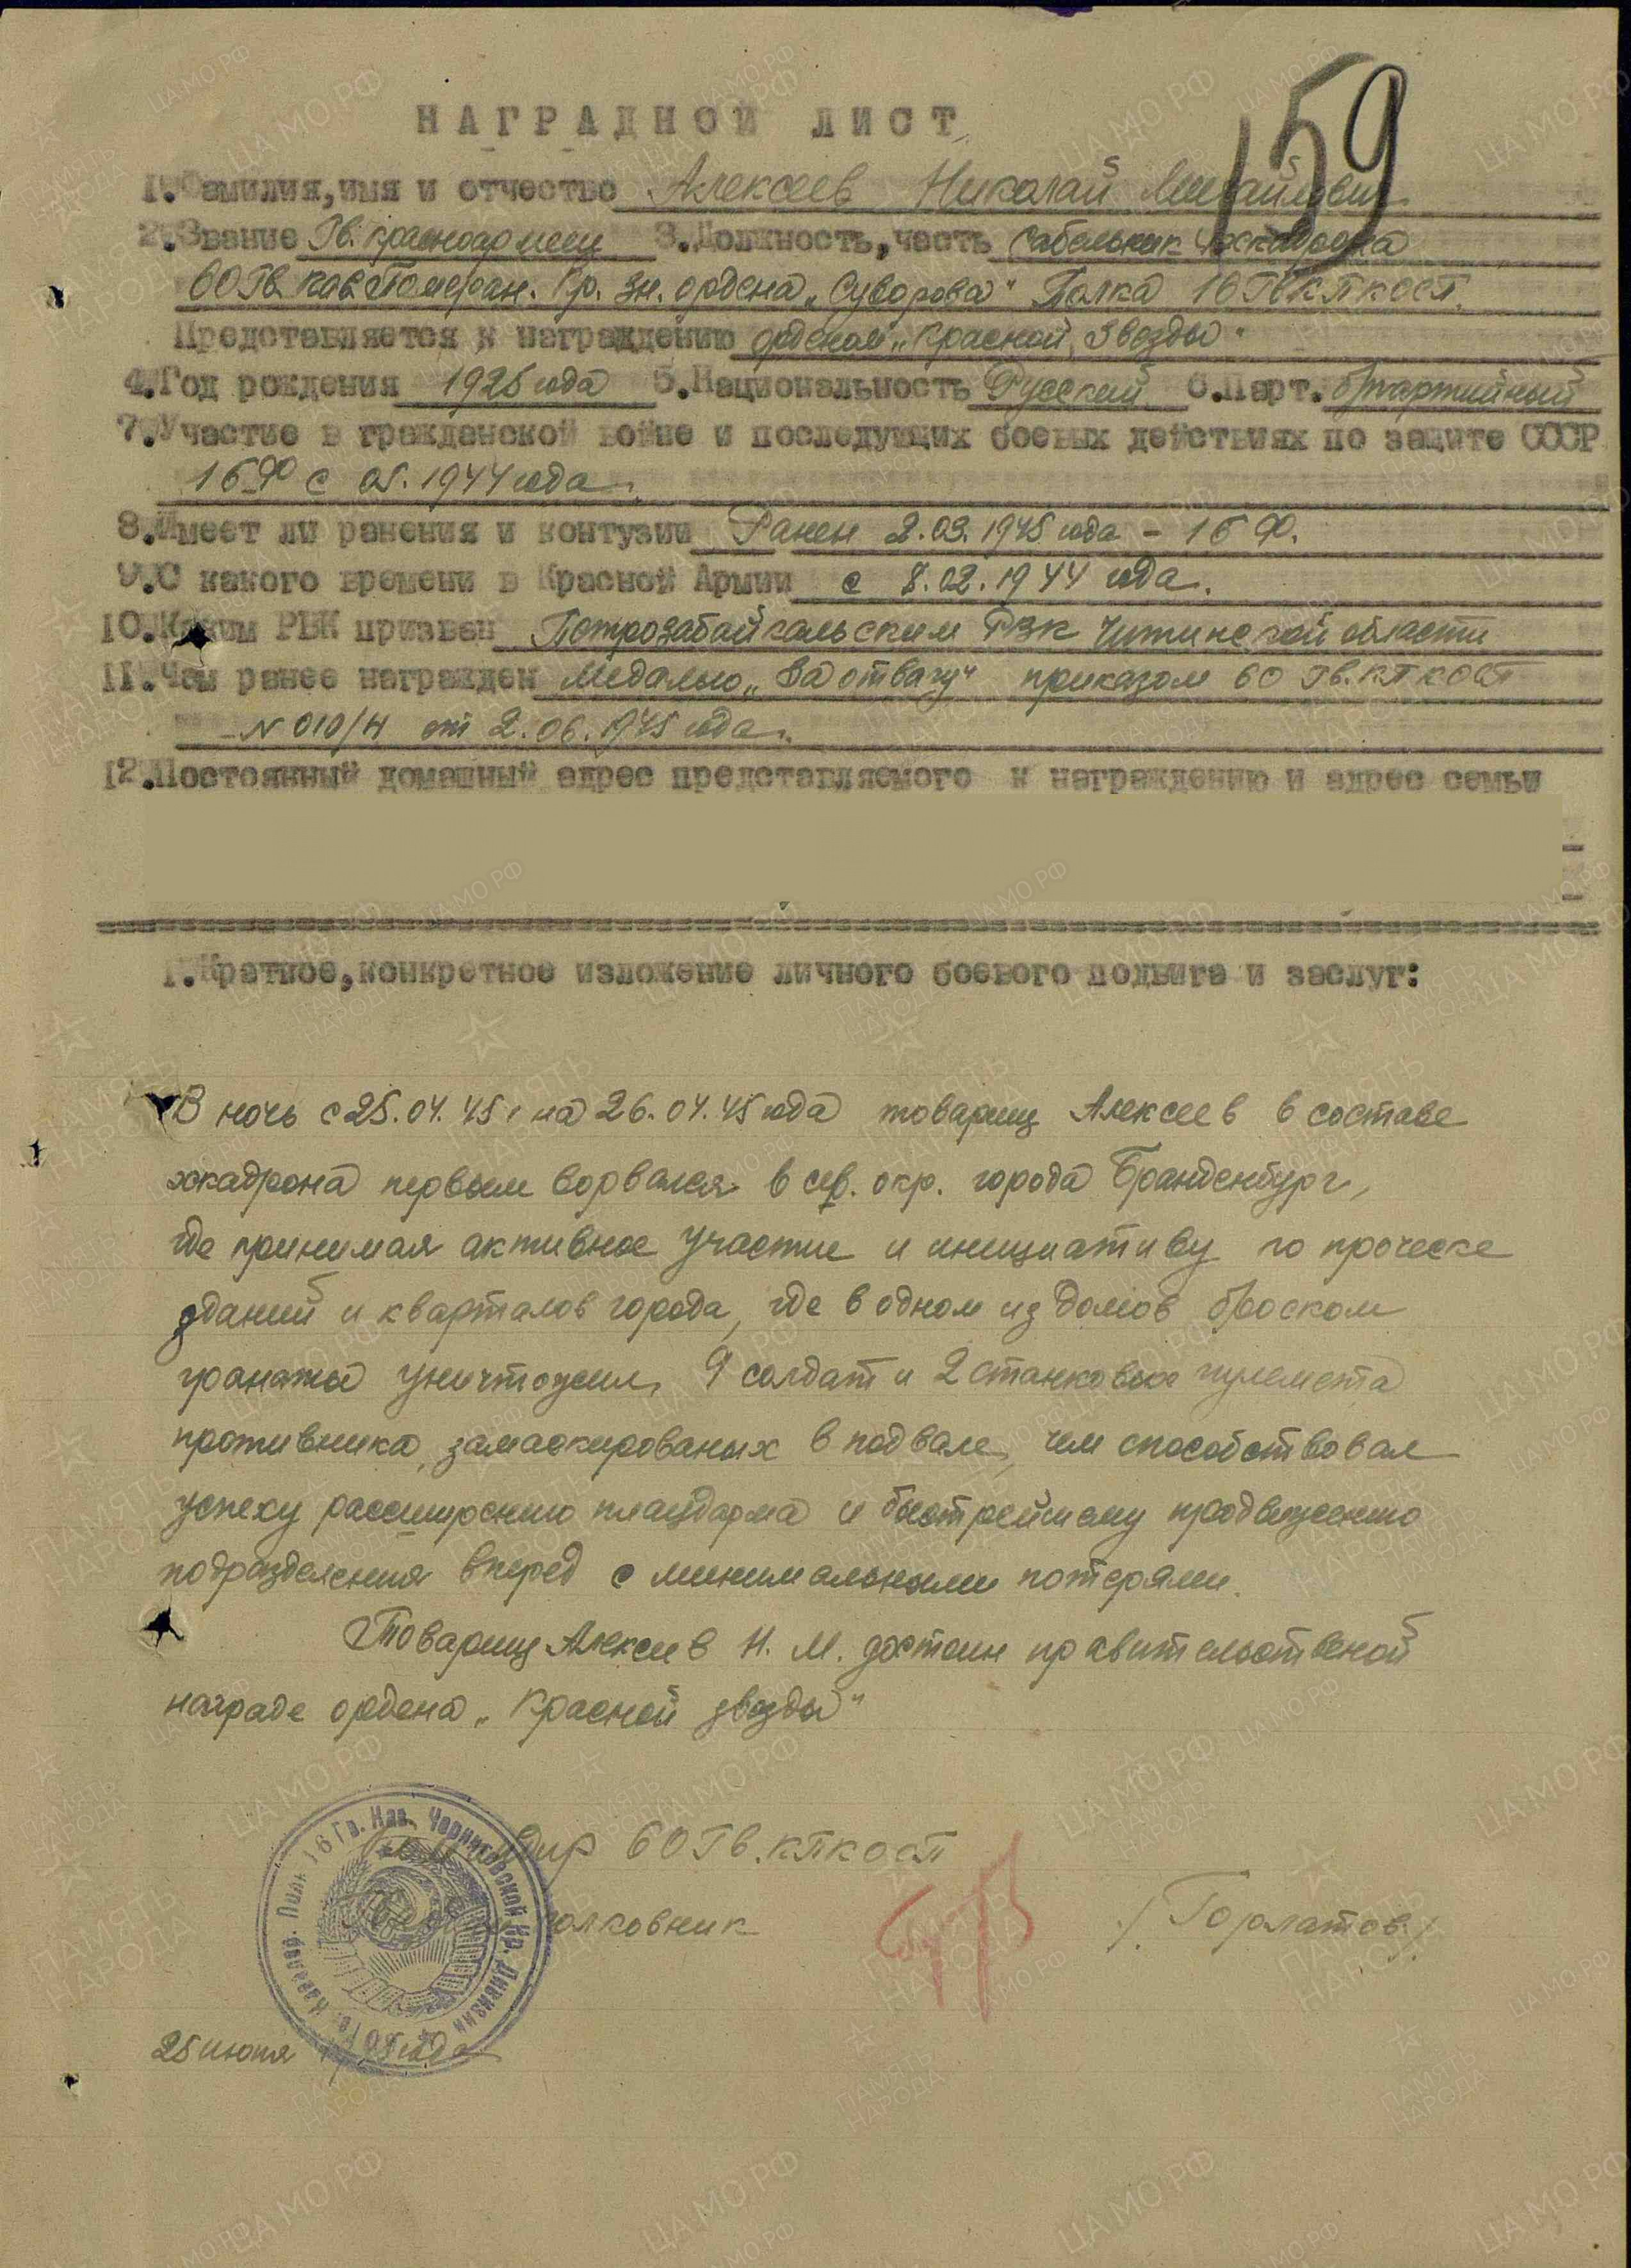 159
НАГРАДНОЙ ЛИСТ
1.Фамилия,имя и отчество Алексеев Николай Михайлович
2.Звание Гв. красноармеец 3.Должность,часть сабельник 4 эскадрона
60 Гв. кав. Померан. Кр. Зн. ордена „Суворова" Полка 16 Гв.
Представляется к награждению орденом „Красной Звезды"
4.Год рождения 1925 года 5.Национальность Русский 6.Парт. б/партийный
7.Участие в гражданской войне и последующих боевых действиях по защите СССР
1БФ с 1944 года.
8.Имеет ли ранения и контузии Ранен 2.03.1945 года – 1БФ.
9.С какого времени в Красной Армии с 8.02.1944 года.
10.Каким РВК призван Петрозабайкальским РВК Читинской области
11.Чем ранее награжден Медалью „За отвагу" приказом 60 Гв.КПКОСП
N 010/Н от 2.06.1945 года.
12.Постоянный домашный адрес представляемого к награждению и адрес семьи
1.Краткое,конкретное изложение личного боевого подвига и заслуг:
В ночь с 25.04.45 на 26.04.45 года товарищ Алексеев в составе
эскадрона первым ворвался в сев. окр. города Бранденбург,
где принимая активное участие и инициативу по проческе
зданий и кварталов города, где в одном из домов броском
гранаты уничтожил 9 солдат и 2 станковых пулемета
противника, замаскированых в подвале, чем способствовал
успеху рассширению плацдарма и быстрейшему продвижению
подразделения вперед с минимальными потерями.
Товарищ Алексеев Н. М. достоин правительственой
награде ордена „Красной звезды"
Командир 60 Гв.КПКОСП
полковник /Горлатов/
Кавалер. Полк 16 Гв. Кав. Черниговской Кр. Дивизии
25 июня 1945 года